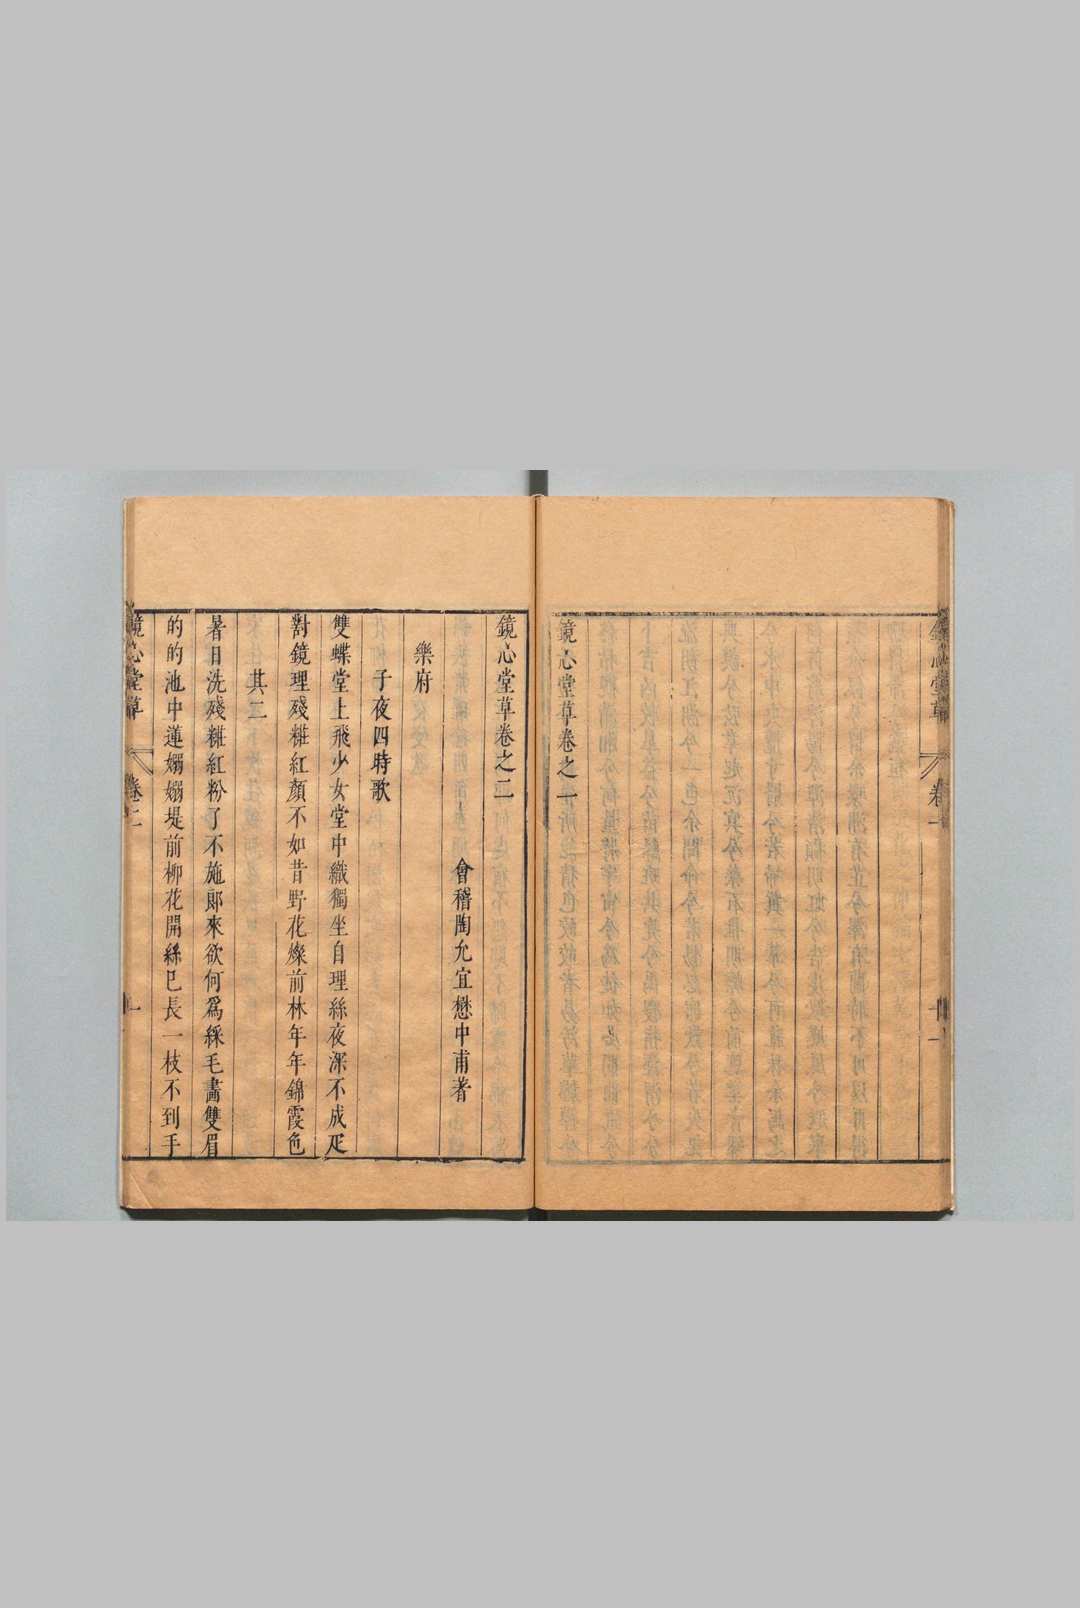 鏡心堂草卷之一
鏡心堂草卷之二
會稽陶允宜懋中甫著
樂府
子夜四時歌
雙蝶堂上飛少女堂中織獨坐自理絲夜深不成疋
對鏡理殘糚紅顏不如昔野花燦前林年年錦霞色
其二
暑日洗殘糚紅粉了不施郎來欲何爲綵毛畵雙眉
的的池中蓮嫋嫋堤前柳花開絲已長一枝不到手
鏡心堂草
卷二
一